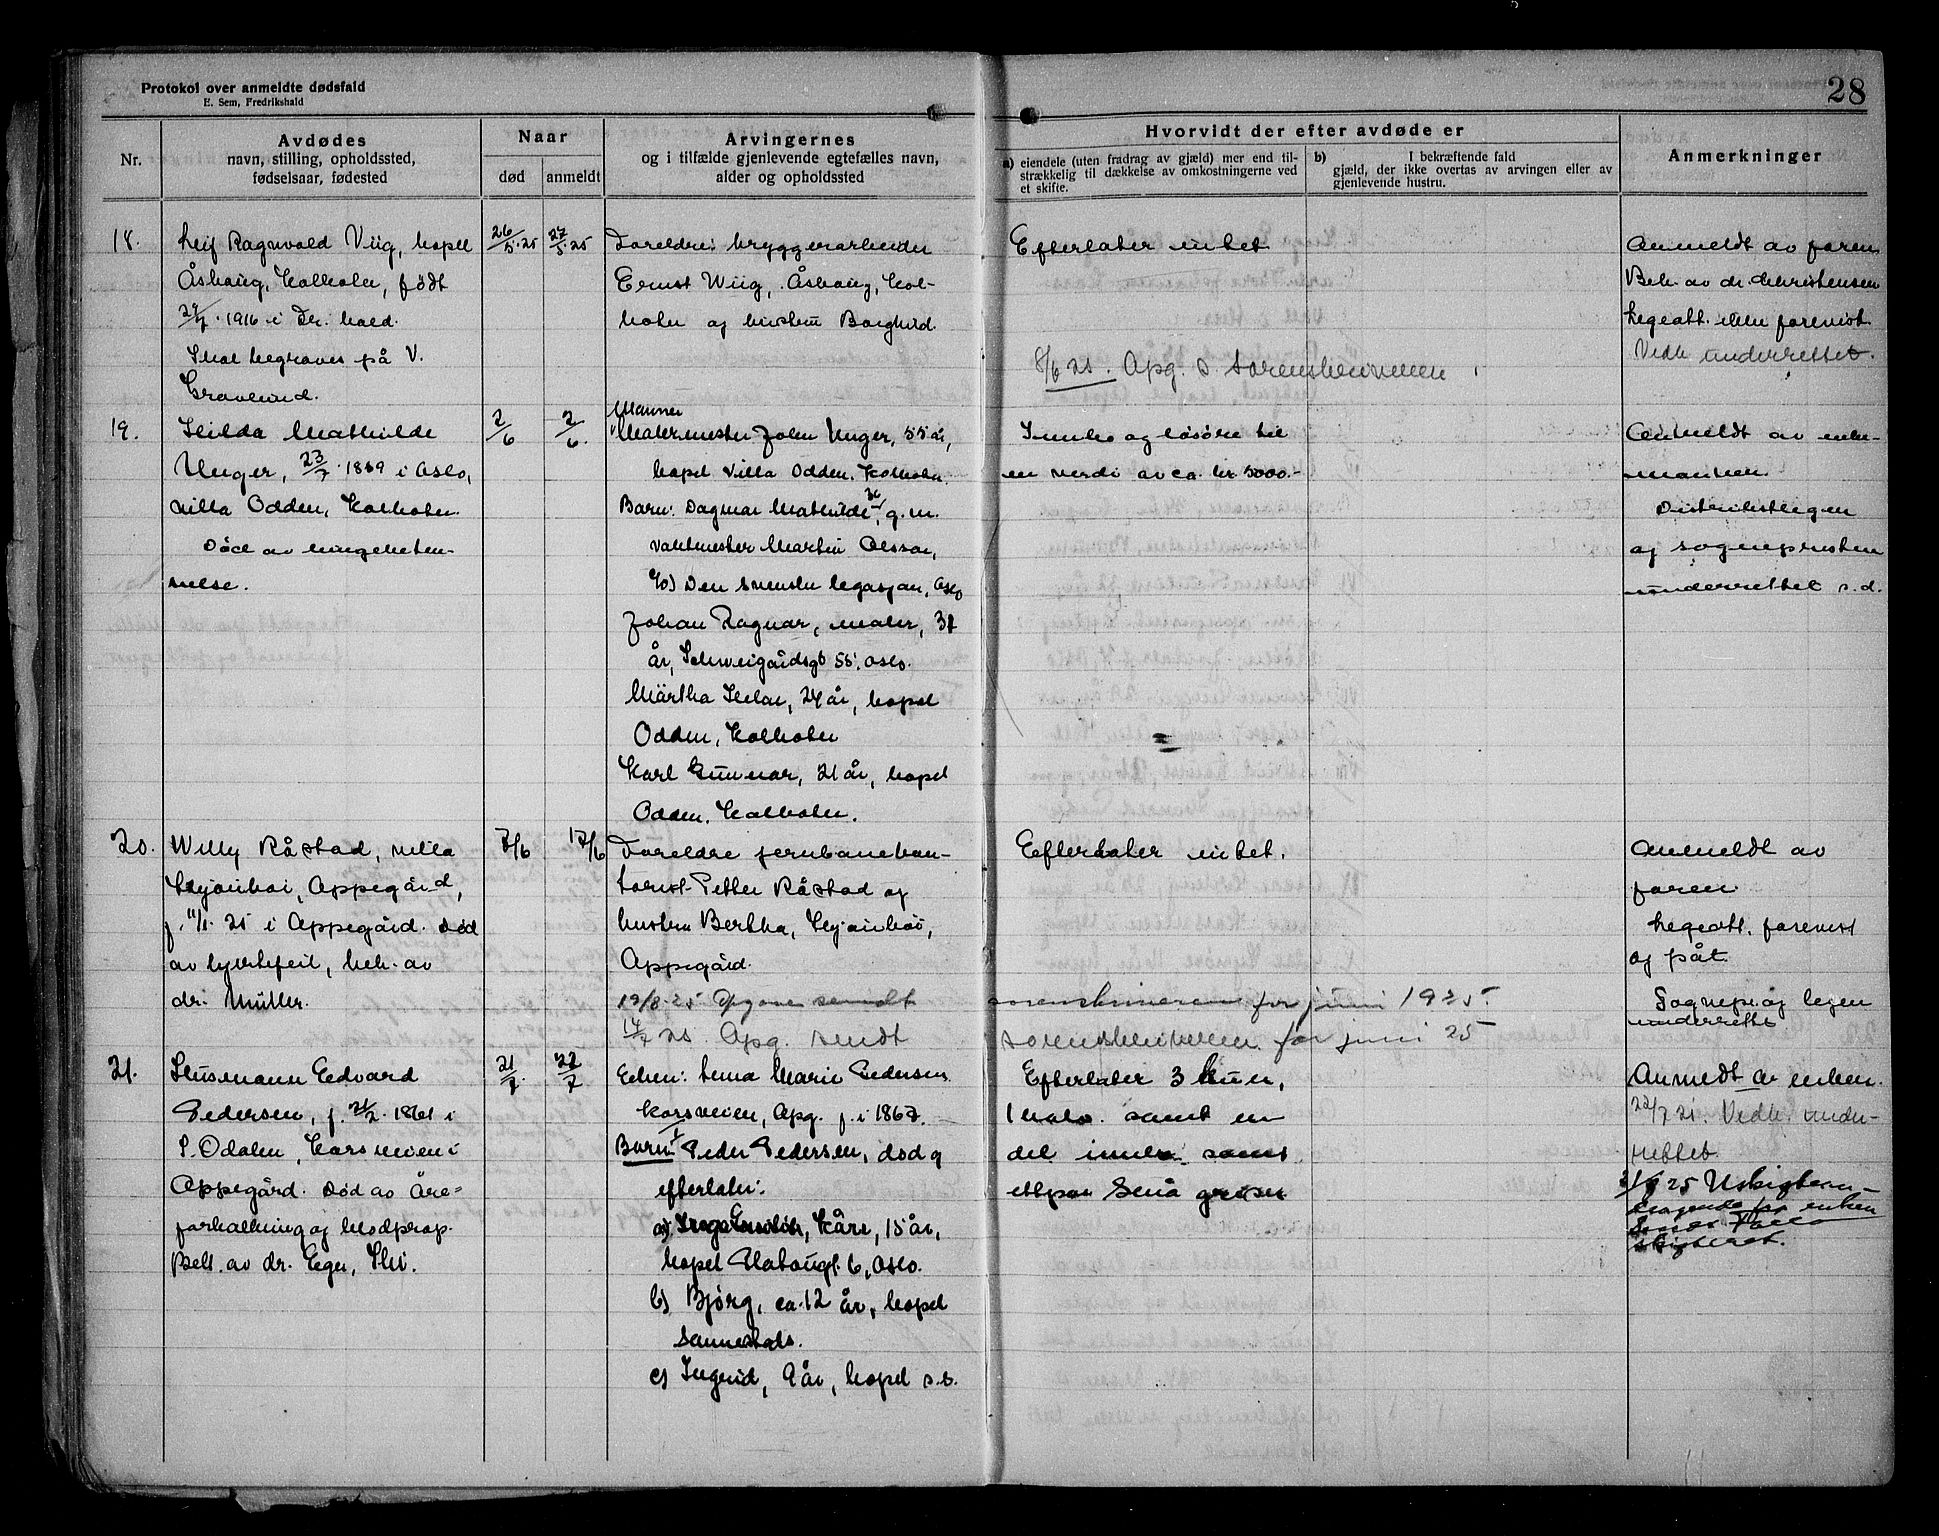 28
Protokol over anmeldte dødsfald
E. Sem, Fredrikshald
Nr.
Avdødes
navn, stilling, opholdssted,
fødselsaar, fødested
Naar
død
anmeldt
Arvingernes
og i tilfælde gjenlevende egtefælles navn,
alder og opholdssted
Hvorvidt der efter avdøde er
a) eiendele (uten fradrag av gjæld) mer end til-
strækkelig til dækkelse av omkostningerne ved
et skifte.
b) I bekræftende fald
gjæld, der ikke overtas av arvingen eller av
gjenlevende hustru.
Anmerkninger
18.
Leif Ragnvald Viig, bopel
Åshaug, Kolbotn, født
1916 i Fr. hald.
Skal begraves på V.
Gravlund.
26/5.25
27/5.25
Foreldre: bryggeriarbeider
Ernst Wiig, Åshaug, Kol-
botn og hustru Borghild.
Efterlater intet
8/6 25. Apg. s. sorenskriveren
Anmeldt av faren
Beh. av dr. Christensen
Legeatt. ikke forevist
Vedk underrettet.
19.
Hilda Mathilde
Unger, 23/7.1869 i Oslo,
villa Odden, Kolbotn
Død av lungebeten-
nelse.
2/6
2/6.
Mannen
Malermester John Unger, 55 år,
bopel Villa Odden, Kolbotn.
Barn: Dagmar Mathilde, g.m.
vaktmester Martin Olsson,
c/o) Den svenske legasjon, Oslo
Johan Ragnar, maler,
år, Schweigårdsgt 55, Oslo.
Märtha, 24 år, bopel
Odden, Kolbotn
Karl Gunnar, 21 år, bopel
Odden, Kolbotn.
Innbo og løsøre til
en verdi av ca. kr. 5000.-
Anmeldt av enke-
mannen
Distriktslegen
og sognepresten
underrettet s.d.
20.
Willy Råstad, villa
Appegård,
f. 11/1. 25 i Appegård. Død
av hjertefeil, beh. av
dr. Müller.
7/6
12/6
Foreldre jernbanekon-
torist Petter Råstad og
hustru Bertha,
Appegård.
Efterlater intet.
Anmeldt av
faren
Legeatt. forevist
og påt.
Sognepr. og legen
underrettet
19/8.25 Opgave sendt sorenskriveren for juni 1925.
14/7 25. Apg. sendt sorenskriveren for juni 25
21.
Husmann Edvard
Pedersen, f. 1861 i
S. Odalen, Korsveien i
Appegård. Død av Åre-
forkalkning og blodprop.
Beh. av dr. Eger, Ski.
21/7.
22/7
Enken: Lena Marie Pedersen
Korsveien, Apg. f. i 1867.
Barn: Peder Pedersen, død og
efterlater:
a) Kåre, 15 år,
bopel 6, Oslo.
b) Bjørg, ca. 12 år, bopel
sammesteds.
c) Ingrid, 9 år, bopel s.s.
Efterlater 3 kuer,
1 kalv. samt en
del innbo samt
et par små griser
Anmeldt av enken.
22/7 25. Vedk. under-
rettet.
25 Uskiftebe-
for enken